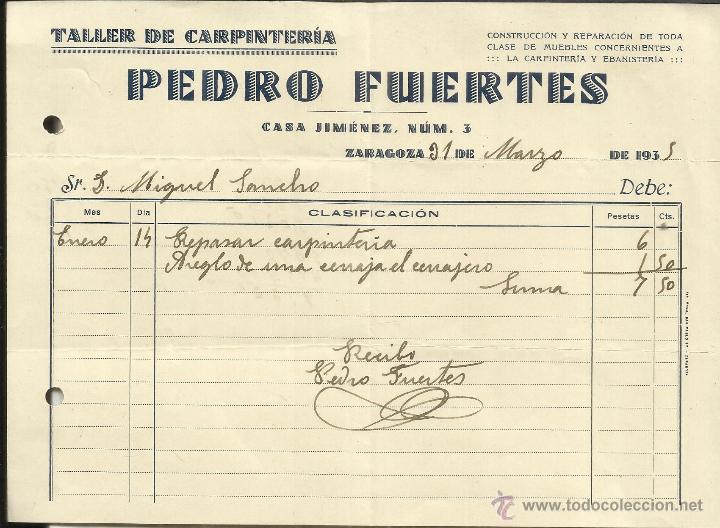 TALLER DE CARPINTERÍA
CONSTRUCCIÓN Y REPARACIÓN DE TODA
CLASE DE MUEBLES CONCERNIENTES A
::: LA CARPINTERÍA Y EBANISTERÍA :::
PEDRO FUERTES
CASA JIMÉNEZ, NÚM. 3
ZARAGOZA 21 DE Marzo DE 1935
Sr. D. Miguel Sancho Debe:
Mes Día CLASIFICACIÓN Pesetas Cts.
Enero 14 Repasar carpinteria 6
Areglo de una cerraja el cerrajero 1 50
Suma 7 50
Recibo
Pedro Fuertes
© www.todocoleccion.net